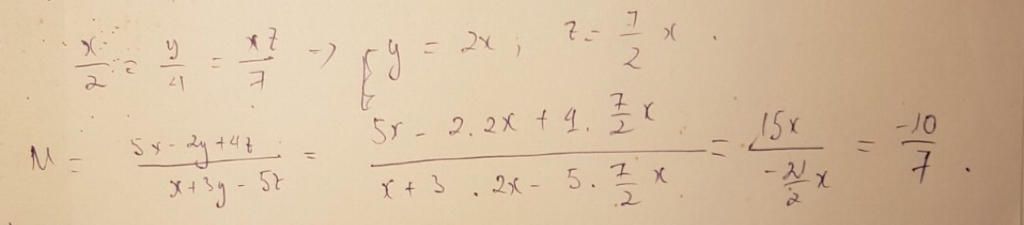 x/2 = y/4 = z/7 → { y = 2x ; z = 7/2 x .
M = (5x - 2y + 4z)/(x + 3y - 5z) = (5x - 2.2x + 4. 7/2 x)/(x + 3 . 2x - 5. 7/2 x) = 15x/(-21/2 x) = -10/7 .